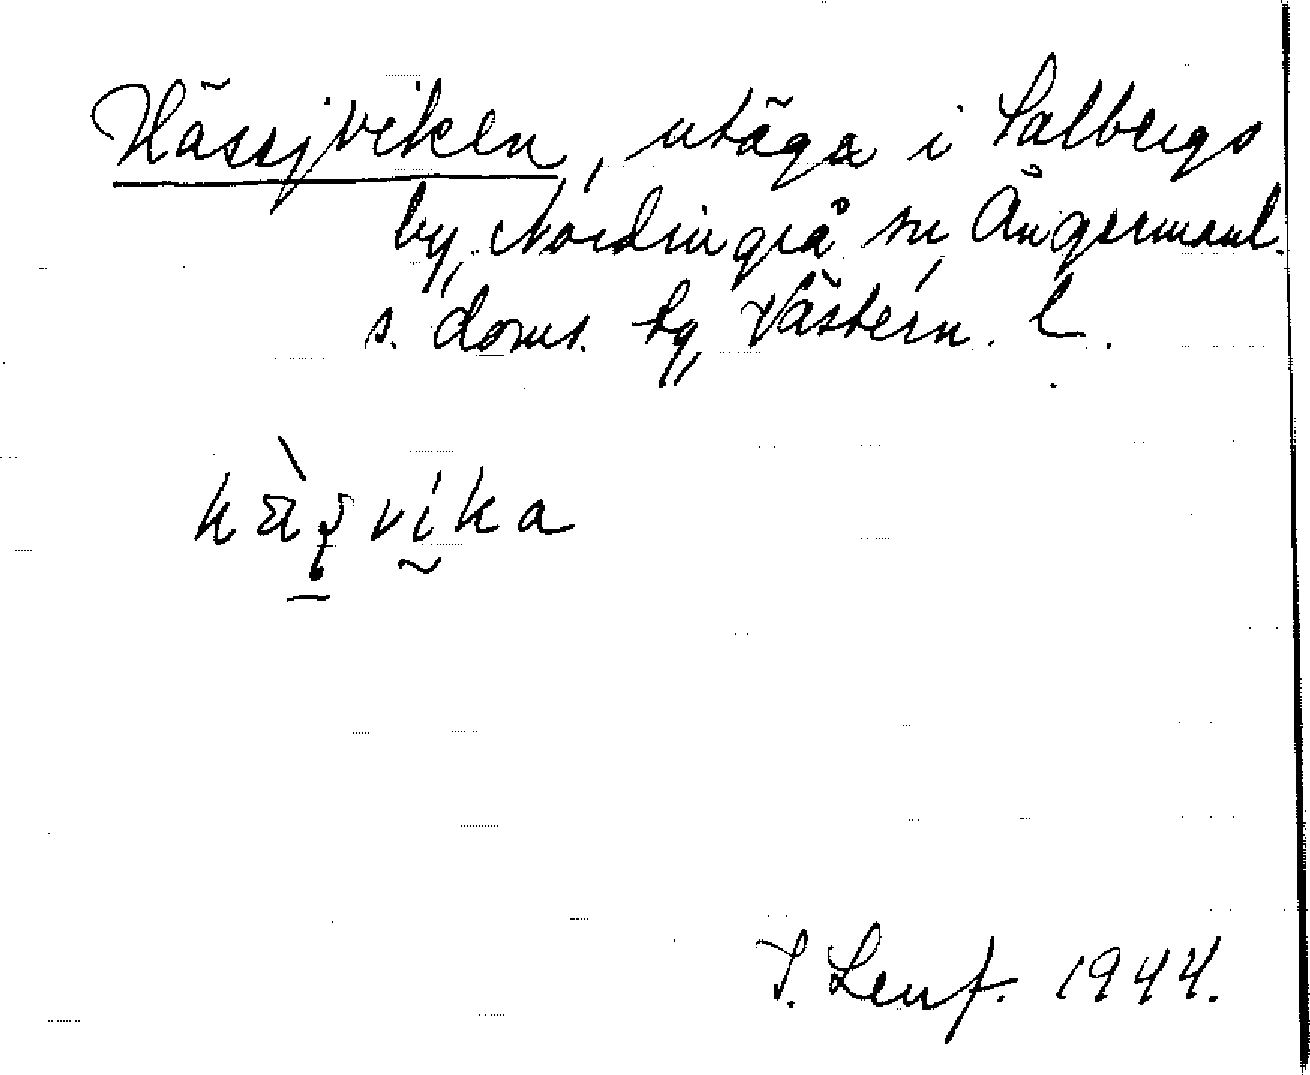 Hässjviken, utäga i Salbergs
by, Nordingrå sn Ångermanl.
s. doms. tg, Västern. l.
hä̀ʂvika
1944.